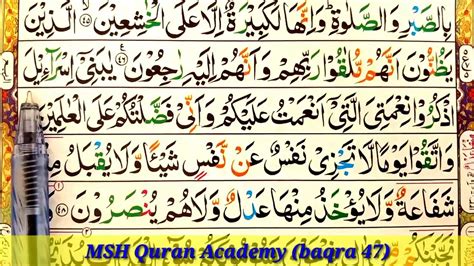 بِالصَّبْرِ وَالصَّلٰوةِ ؕ وَاِنَّهَا لَكَبِيْرَةٌ اِلَّا عَلَى الْخٰشِعِيْنَ ۙ‏﴿۴۵﴾ الَّذِيْنَ
يَظُنُّوْنَ اَنَّهُمْ مُّلٰقُوْا رَبِّهِمْ وَاَنَّهُمْ اِلَيْهِ رٰجِعُوْنَ ﴿۴۶﴾ يٰبَنِىْٓ اِسْرَآءِيْلَ
اذْكُرُوْا نِعْمَتِىَ الَّتِىْٓ اَنْعَمْتُ عَلَيْكُمْ وَاَنِّىْ فَضَّلْتُكُمْ عَلَى الْعٰلَمِيْنَ
وَاتَّقُوْا يَوْمًا لَّا تَجْزِىْ نَفْسٌ عَنْ نَّفْسٍ شَيْـًٔا وَّلَا يُقْبَلُ مِنْهَا
شَفَاعَةٌ وَّلَا يُؤْخَذُ مِنْهَا عَدْلٌ وَّلَا هُمْ يُنْصَرُوْنَ ﴿۴۸﴾
MSH Quran Academy (baqra 47)